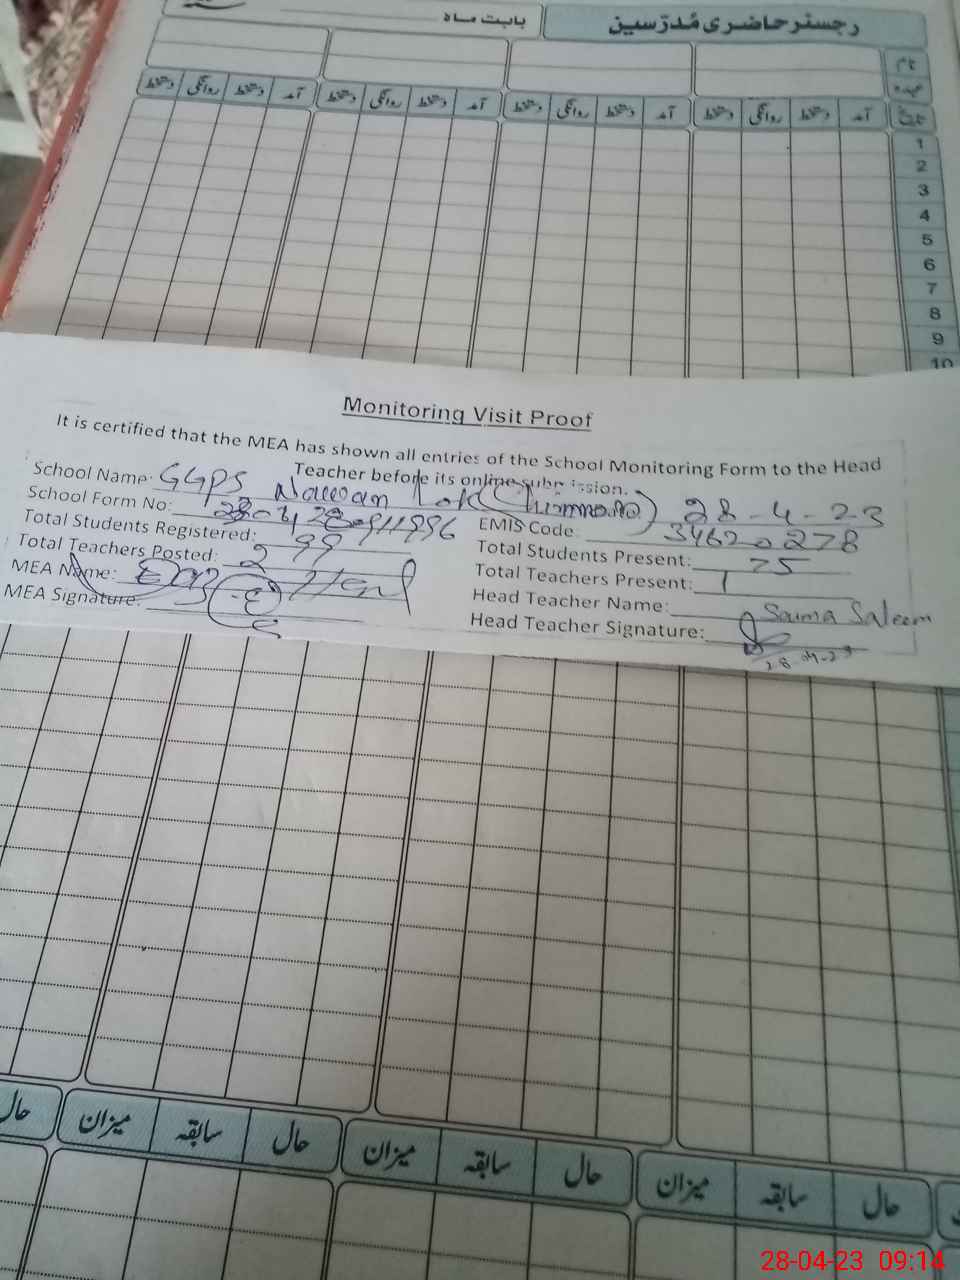 رجسٹر حاضری مُدرّسین بابت ماہ
نام
عہدہ
تاریخ آمد دستخط روانگی دستخط آمد دستخط روانگی دستخط آمد دستخط روانگی دستخط آمد دستخط روانگی دستخط
1
2
3
4
5
6
7
8
9
10
Monitoring Visit Proof
It is certified that the MEA has shown all entries of the School Monitoring Form to the Head
Teacher before its online submission.
School Name: GGPS Nawan 28-4-23
School Form No: EMIS Code: 34620278
Total Students Registered: 99 Total Students Present: 75
Total Teachers Posted: 2 Total Teachers Present: 1
MEA Name: Head Teacher Name: Saima Saleem
MEA Signature: Head Teacher Signature:
28-04-23
حال سابقہ میزان حال سابقہ میزان حال سابقہ میزان حال
28-04-23 09:14